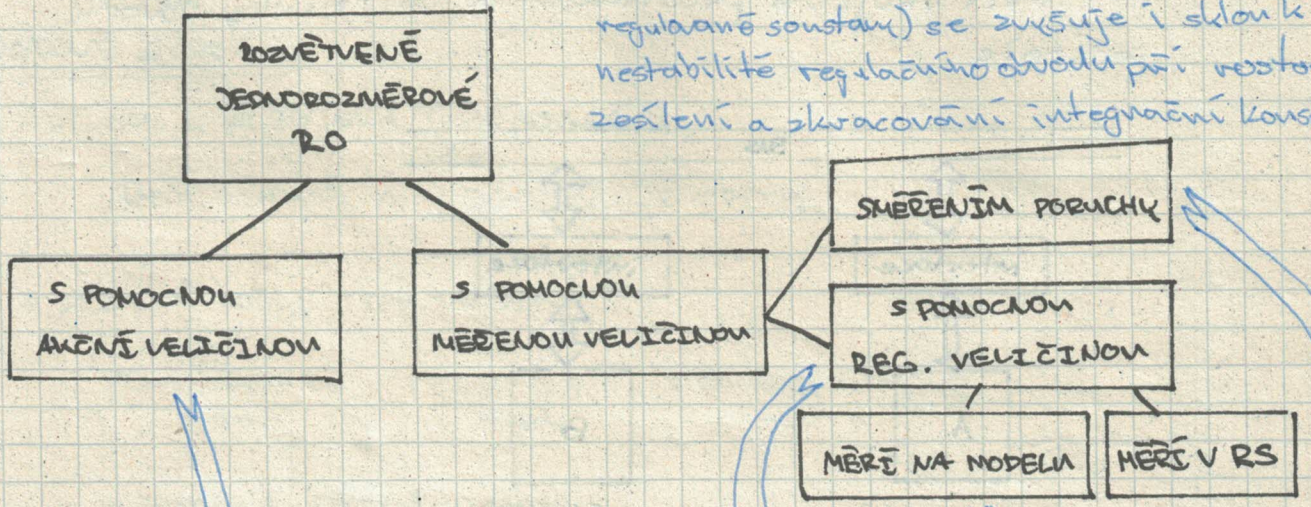 regulované soustavy) se zvyšuje i sklon k
nestabilitě regulačního obvodu při
zesílení a zkracování integrační
ROZVĚTVENÉ
JEDNOROZMĚROVÉ
RO
S MĚŘENÍM PORUCHY
S POMOCNOU
AKČNÍ VELIČINOU
S POMOCNOU
MĚŘENOU VELIČINOU
S POMOCNOU
REG. VELIČINOU
MĚŘÍ NA MODELU
MĚŘÍ V RS